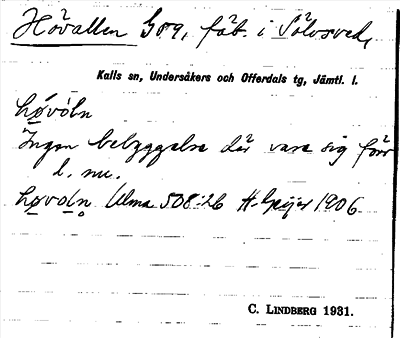 Hövallen G89, fäb. i Sölvsved,
Kalls sn, Undersåkers och Offerdals tg, Jämtl. l.
hǿvóln
Ingen bebyggelse där vare sig förr
l. nu.
høvoln Ulma 508:26 H. Geijer 1906
C. LINDBERG 1931.